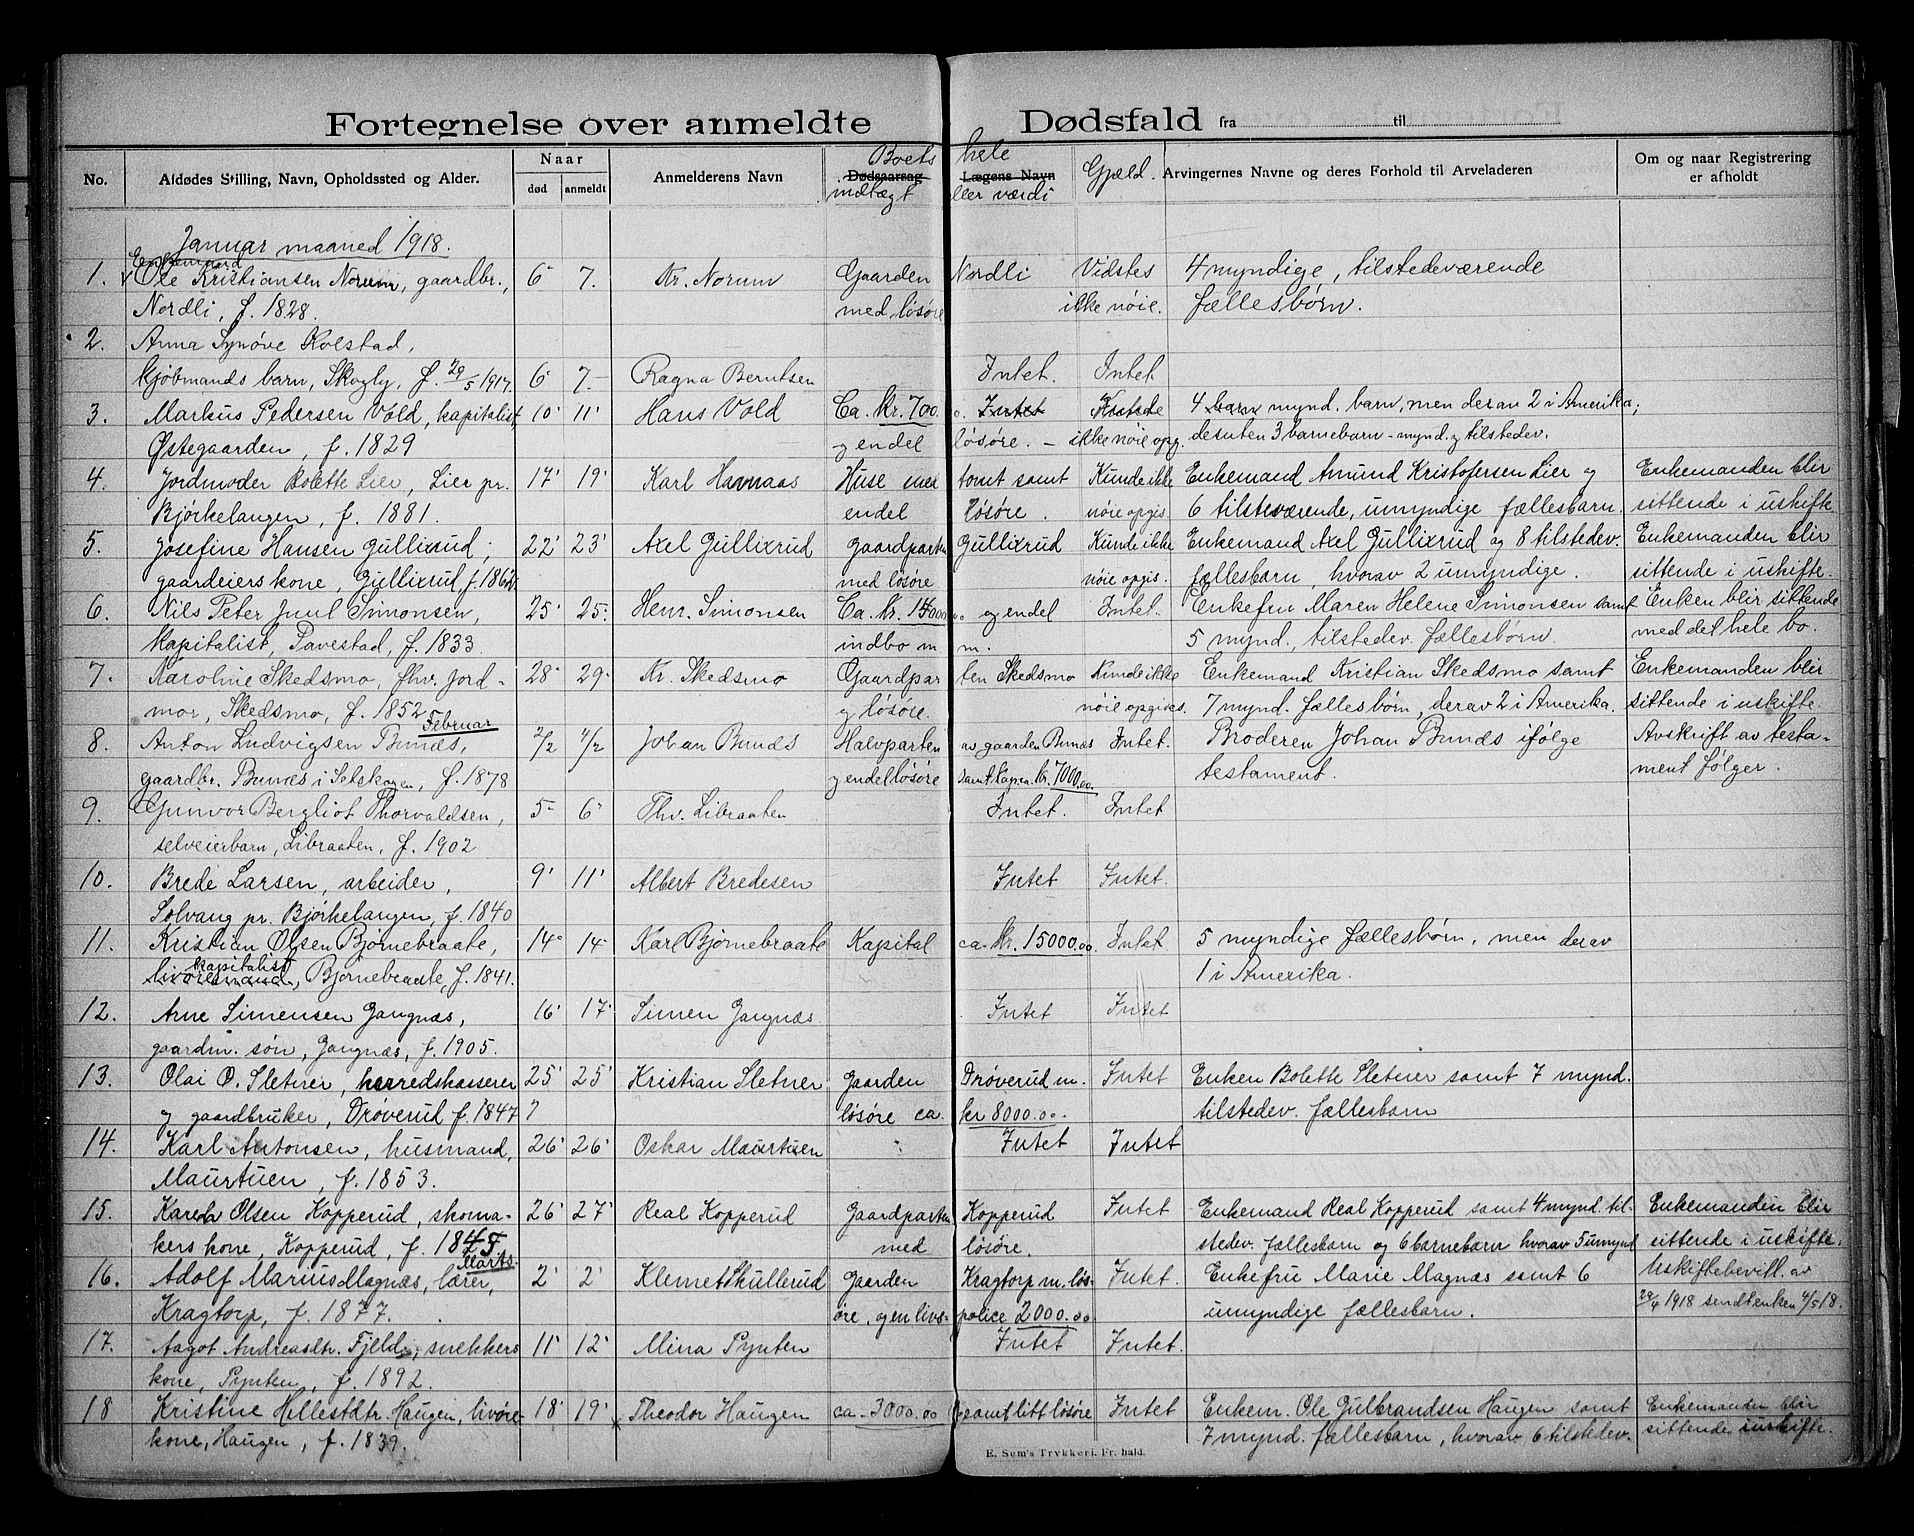 Fortegnelse over anmeldte Dødsfald fra til
No. Afdødes Stilling, Navn, Opholdssted og Alder. Naar død anmeldt Anmelderens Navn Boets hele Dødsaarsag Lægens Navn indtægt eller værdi Gjæld. Arvingernes Navne og deres Forhold til Arveladeren Om og naar Registrering er afholdt
Januar maaned 1918.
Enkemand
1. Ole Kristiansen Norum, gaardbr., 6 7. Kr. Norum Gaarden Nordli Vidstes 4 myndige, tilstedeværende
Nordli, f. 1828. med løsøre ikke nøie. fællesbørn.
2. Anna Synøve Kolstad,
kjøbmands barn, Skogly, f. 29/5 1917. 6 7. Ragna Berntsen Intet. Intet
3. Markus Pedersen Vold, kapitalist, 10 11 Hans Vold Ca. kr. 700. Intet 4 barn mynd. barn, men derav 2 i Amerika;
Østegaarden, f. 1829 og endel løsøre. - ikke nøie opg. desuten 3 barnebarn - mynd. og tilstedev.
4. Jordmoder Bolette Lier, Lier pr. 17 19 Karl Havnaas Huse med tomt samt Kunde ikke Enkemand Amund Kristofersen Lier og Enkemanden blir
Bjørkelangen, f. 1881. endel løsøre. nøie opgis. 6 tilsteværende, umyndige fællesbarn. sittende i uskifte
5. Josefine Hansen Gullixrud, 22 23 Axel Gullixrud Gaardparten Gullixrud Kunde ikke Enkemand Axel Gullixrud og 8 tilstedev. Enkemanden blir
gaardeiers kone, Gullixrud, f. 1862. med løsøre nøie opgis. fællesbarn, hvorav 2 umyndige. sittende i uskifte.
6. Nils Peter Juul Simonsen, 25 25. Henr. Simonsen Ca. kr. og endel Intet. Enkefru Maren Helene Simonsen samt Enken blir sittende
kapitalist, Tavestad, f. 1833. indbo m m. 5 mynd., tilstedev. fællesbørn. med det hele bo.
7. Karoline Skedsmo, fhv. jord- 28 29 Kr. Skedsmo Gaardpar ten Skedsmo Kunde ikke Enkemand Kristian Skedsmo samt Enkemanden blir
mor, Skedsmo, f. 1852. og løsøre. nøie opgives. 7 mynd. fællesbørn, derav 2 i Amerika. sittende i uskifte.
Februar
8. Anton Ludvigsen Bunæs, 2/2 4/2 Johan Bunæs Halvparten av gaarden Bunæs Intet. Broderen Johan Bunæs ifølge Avskrift av testa-
gaardbr. Bunæs i Setskogen, f. 1878 og endel løsøre samt kap. ca. kr. 7000.00. testament. ment følger.
9. Gunvor Bergliot Thorvaldsen, 5 6 Thv. Libraaten Intet. Intet
selveierbarn, Libraaten, f. 1902
10. Brede Larsen, arbeider, 9 11 Albert Bredesen Intet Intet.
Solvang pr. Bjørkelangen, f. 1840
11. Kristian Olsen Bjørnebraate, 14 14 Karl Bjørnebraate Kapital ca. kr. 15000.00. Intet 5 myndige fællesbørn, men derav
kapitalist
livøremand, Bjørnebraate, f. 1841. 1 i Amerika.
12. Arne Simensen Gangnæs, 16 17 Simen Gangnæs Intet Intet
gaardm. søn, Gangnæs, f. 1905.
13. Olai O. Sletner, herredskasserer 25 25 Kristian Sletner Gaarden Drøverud m. Intet Enken Bolette Sletner samt 7 mynd.
og gaardbruker, Drøverud f. 1847 ? løsøre ca. kr 8000.00. tilstedev. fællesbarn
14. Karl Antonsen, husmand, 26 26 Oskar Maurtuen Intet Intet
Maurtuen, f. 1853.
15. Karen Olsen Kopperud, skoma- 26 27 Real Kopperud Gaardparten Kopperud Intet Enkemand Real Kopperud samt 4 mynd. til- Enkemanden blir
kers kone, Kopperud, f. 1845 med løsøre. stedev. fællesbarn og 6 barnebarn hvorav 5 umynd sittende i uskifte.
Marts.
16. Adolf Marius Magnæs, lærer, 2 2 Klemet Skullerud Gaarden Kragtorp m. løs- Intet. Enkefru Marie Magnæs samt 6 Uskiftebevill. av
Kragtorp, f. 1877. øre, og en livs- police 2000.00 umyndige fællesbarn. 29/4 1918 sendt enken 4/5 18.
17. Aagot Andreasdtr. Fjeld, snekkers 11 12 Mina Pynten Intet Intet.
kone, Pynten, f. 1892.
18 Kristine Hellestdtr. Haugen, livøre- 18 19 Theodor Haugen ca. 3000.00 samt litt løsøre Intet Enkem. Ole Gulbrandsen Haugen samt Enkemanden blir
kone, Haugen, f. 1839. 7 mynd. fællesbarn, hvorav 6 tilstedev. sittende i uskifte.
E. Sem's Trykkeri. Fr. hald.